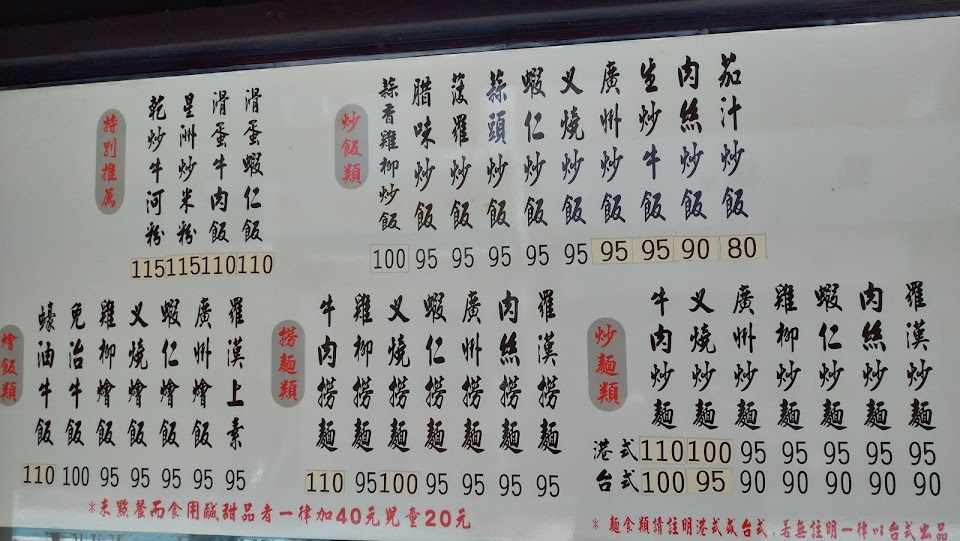 特別推薦
乾炒牛河粉 115
星洲炒米粉 115
滑蛋牛肉飯 110
滑蛋蝦仁飯 110
炒飯類
蒜香雞柳炒飯 100
腊味炒飯 95
菠羅炒飯 95
蒜頭炒飯 95
蝦仁炒飯 95
叉燒炒飯 95
廣州炒飯 95
生炒牛飯 95
肉絲炒飯 90
茄汁炒飯 80
燴飯類
蠔油牛飯 110
免治牛飯 100
雞柳燴飯 95
叉燒燴飯 95
蝦仁燴飯 95
廣州燴飯 95
羅漢上素 95
撈麵類
牛肉撈麵 110
雞柳撈麵 95
叉燒撈麵 100
蝦仁撈麵 95
廣州撈麵 95
肉絲撈麵 95
羅漢撈麵 95
炒麵類
牛肉炒麵
叉燒炒麵
廣州炒麵
雞柳炒麵
蝦仁炒麵
肉絲炒麵
羅漢炒麵
港式 110 100 95 95 95 95 95
台式 100 95 90 90 90 90 90
*未點餐而食用鹹甜品者一律加40元兒童20元
* 麵食類請註明港式或台式,若無註明一律以台式出品